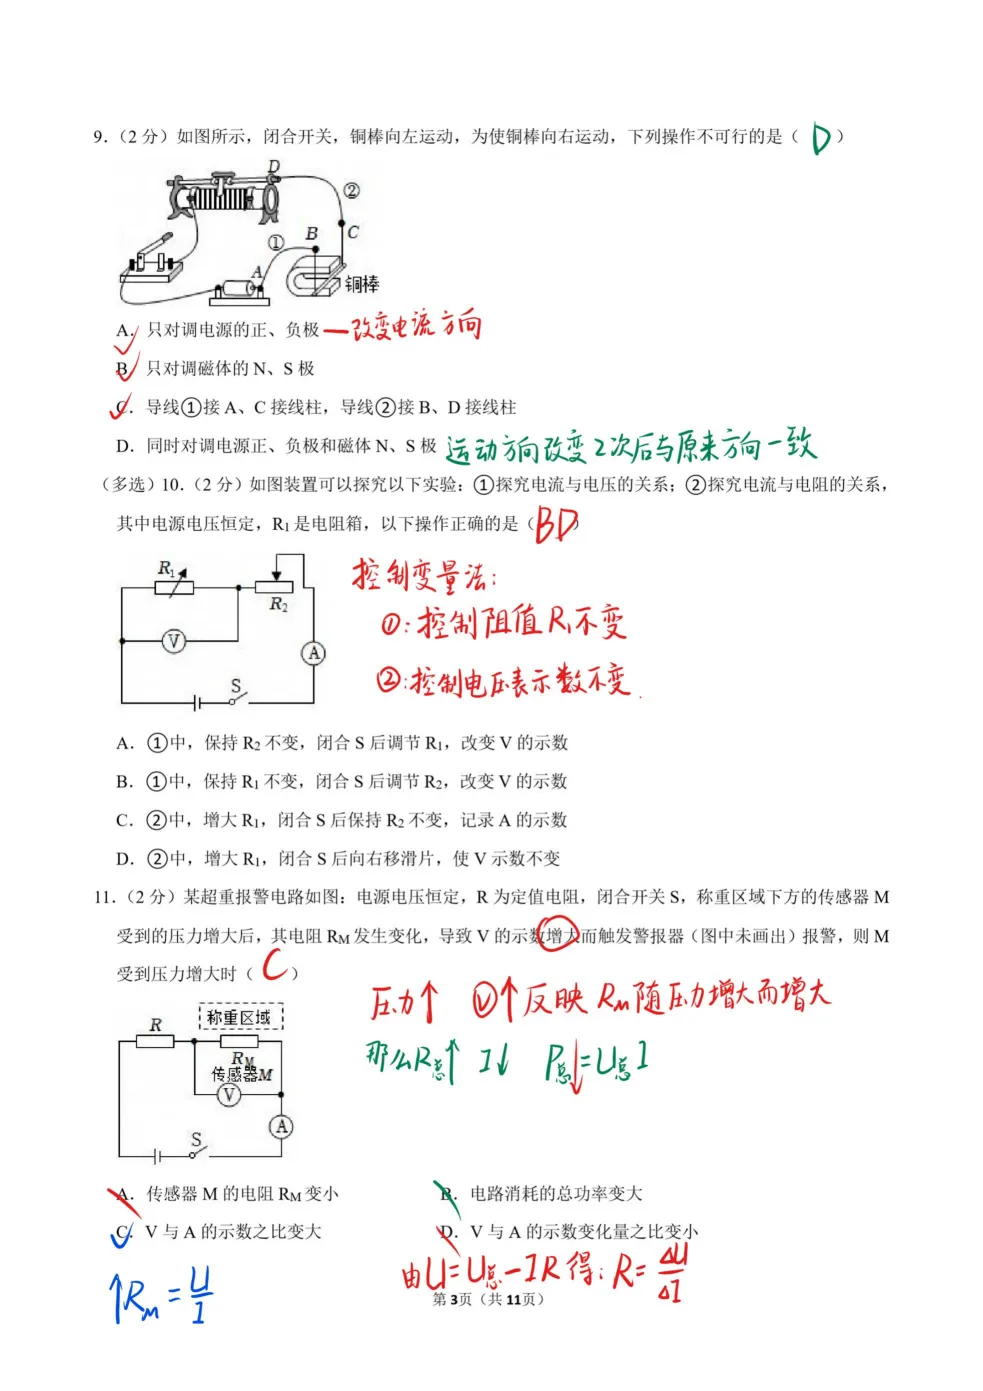 9.（2 分）如图所示，闭合开关，铜棒向左运动，为使铜棒向右运动，下列操作不可行的是（ D ）
D
②
B
C
①
A
铜棒
A．只对调电源的正、负极 —改变电流方向
B．只对调磁体的 N、S 极
C．导线①接 A、C 接线柱，导线②接 B、D 接线柱
D．同时对调电源正、负极和磁体 N、S 极 运动方向改变2次后与原来方向一致
（多选）10.（2 分）如图装置可以探究以下实验：①探究电流与电压的关系；②探究电流与电阻的关系，
其中电源电压恒定，R1 是电阻箱，以下操作正确的是（ BD ）
R1
R2
V
A
S
控制变量法：
①：控制阻值R1不变
②：控制电压表示数不变.
A．①中，保持 R2 不变，闭合 S 后调节 R1，改变 V 的示数
B．①中，保持 R1 不变，闭合 S 后调节 R2，改变 V 的示数
C．②中，增大 R1，闭合 S 后保持 R2 不变，记录 A 的示数
D．②中，增大 R1，闭合 S 后向右移滑片，使 V 示数不变
11.（2 分）某超重报警电路如图：电源电压恒定，R 为定值电阻，闭合开关 S，称重区域下方的传感器 M
受到的压力增大后，其电阻 RM 发生变化，导致 V 的示数增大而触发警报器（图中未画出）报警，则 M
受到压力增大时（ C ）
R
称重区域
RM
传感器M
V
A
S
压力↑ Ⓥ↑反映 RM随压力增大而增大
那么R总↑ I↓ P总↓=U总I
A．传感器 M 的电阻 RM 变小 B．电路消耗的总功率变大
C．V 与 A 的示数之比变大 D．V 与 A 的示数变化量之比变小
↑RM = U/I
由U=U总-IR得：R=ΔU/ΔI
第 3页（共 11页）